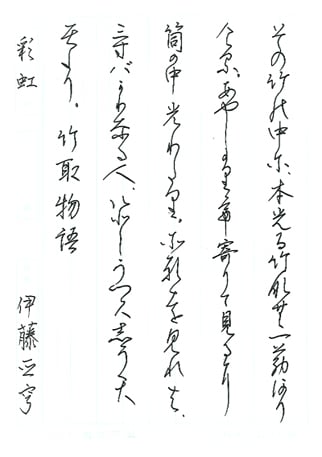 その竹の中に、本光る竹なむ一筋あり
ける。あやしがりて寄りて見るに
筒の中光りたり。それを見れば、
三寸ばかりなる人、いとうつくしうてゐ
たり。竹取物語
彩虹 伊藤